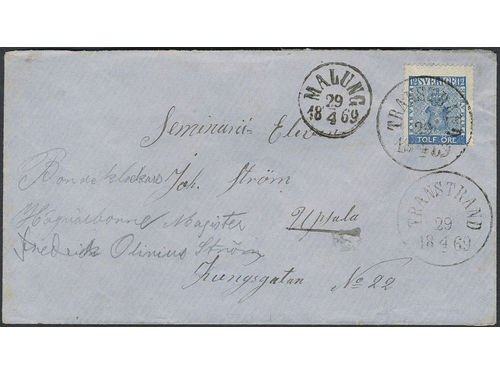 12 SVERIGE 12
TOLF ÖRE
MALUNG
29
18 4 69
TRANSTRAND
29
18 4 69
TRANSTRAND
29
18 4 69
Seminarii
Joh. Ström
Magister
Upsala
Fredrick Olinius Ström
Kungsgatan No 22